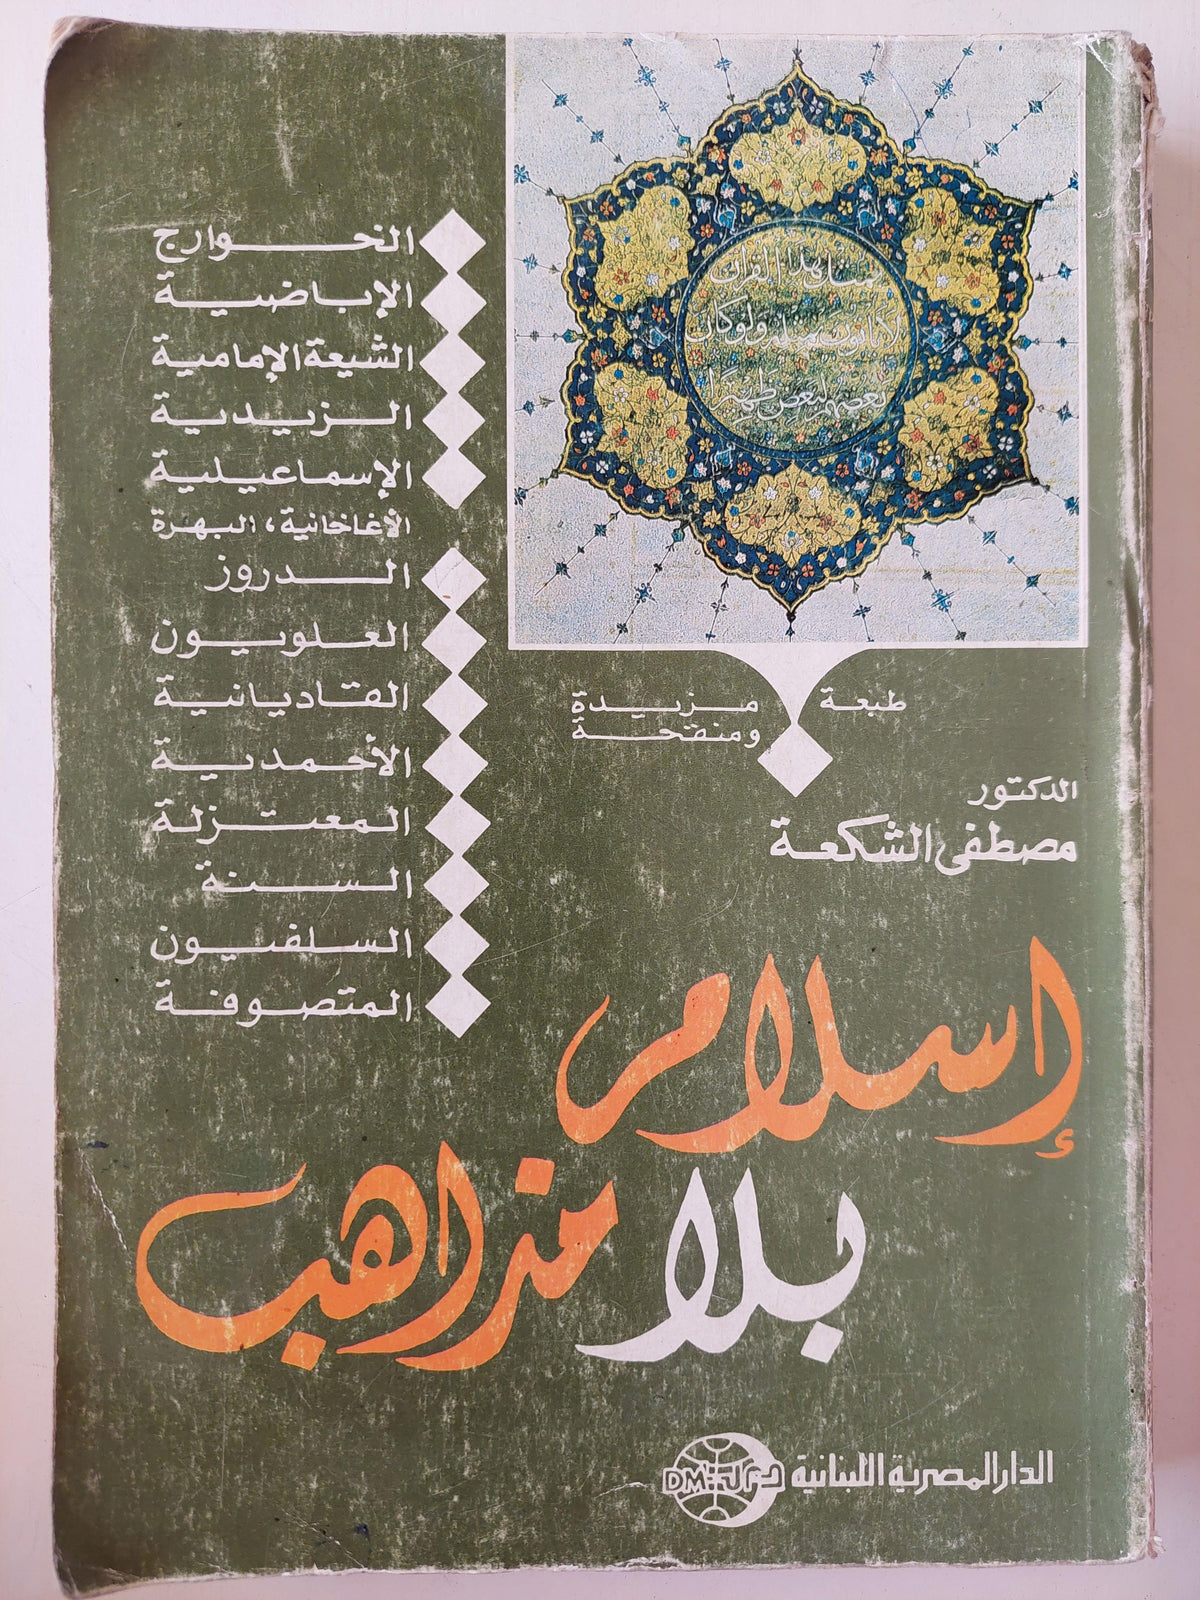 بهذا القرآن
لا يأتون بمثله ولو كان
بعضهم لبعض ظهيرا
الخوارج
الإباضية
الشيعة الإمامية
الزيدية
الإسماعيلية
الأغاخانية، البهرة
الدروز
العلويون
القاديانية
الأحمدية
المعتزلة
السنة
السلفيون
المتصوفة
طبعة مزيدة
ومنقحة
الدكتور
مصطفى الشكعة
إسلام
بلا مذاهب
الدار المصرية اللبنانية